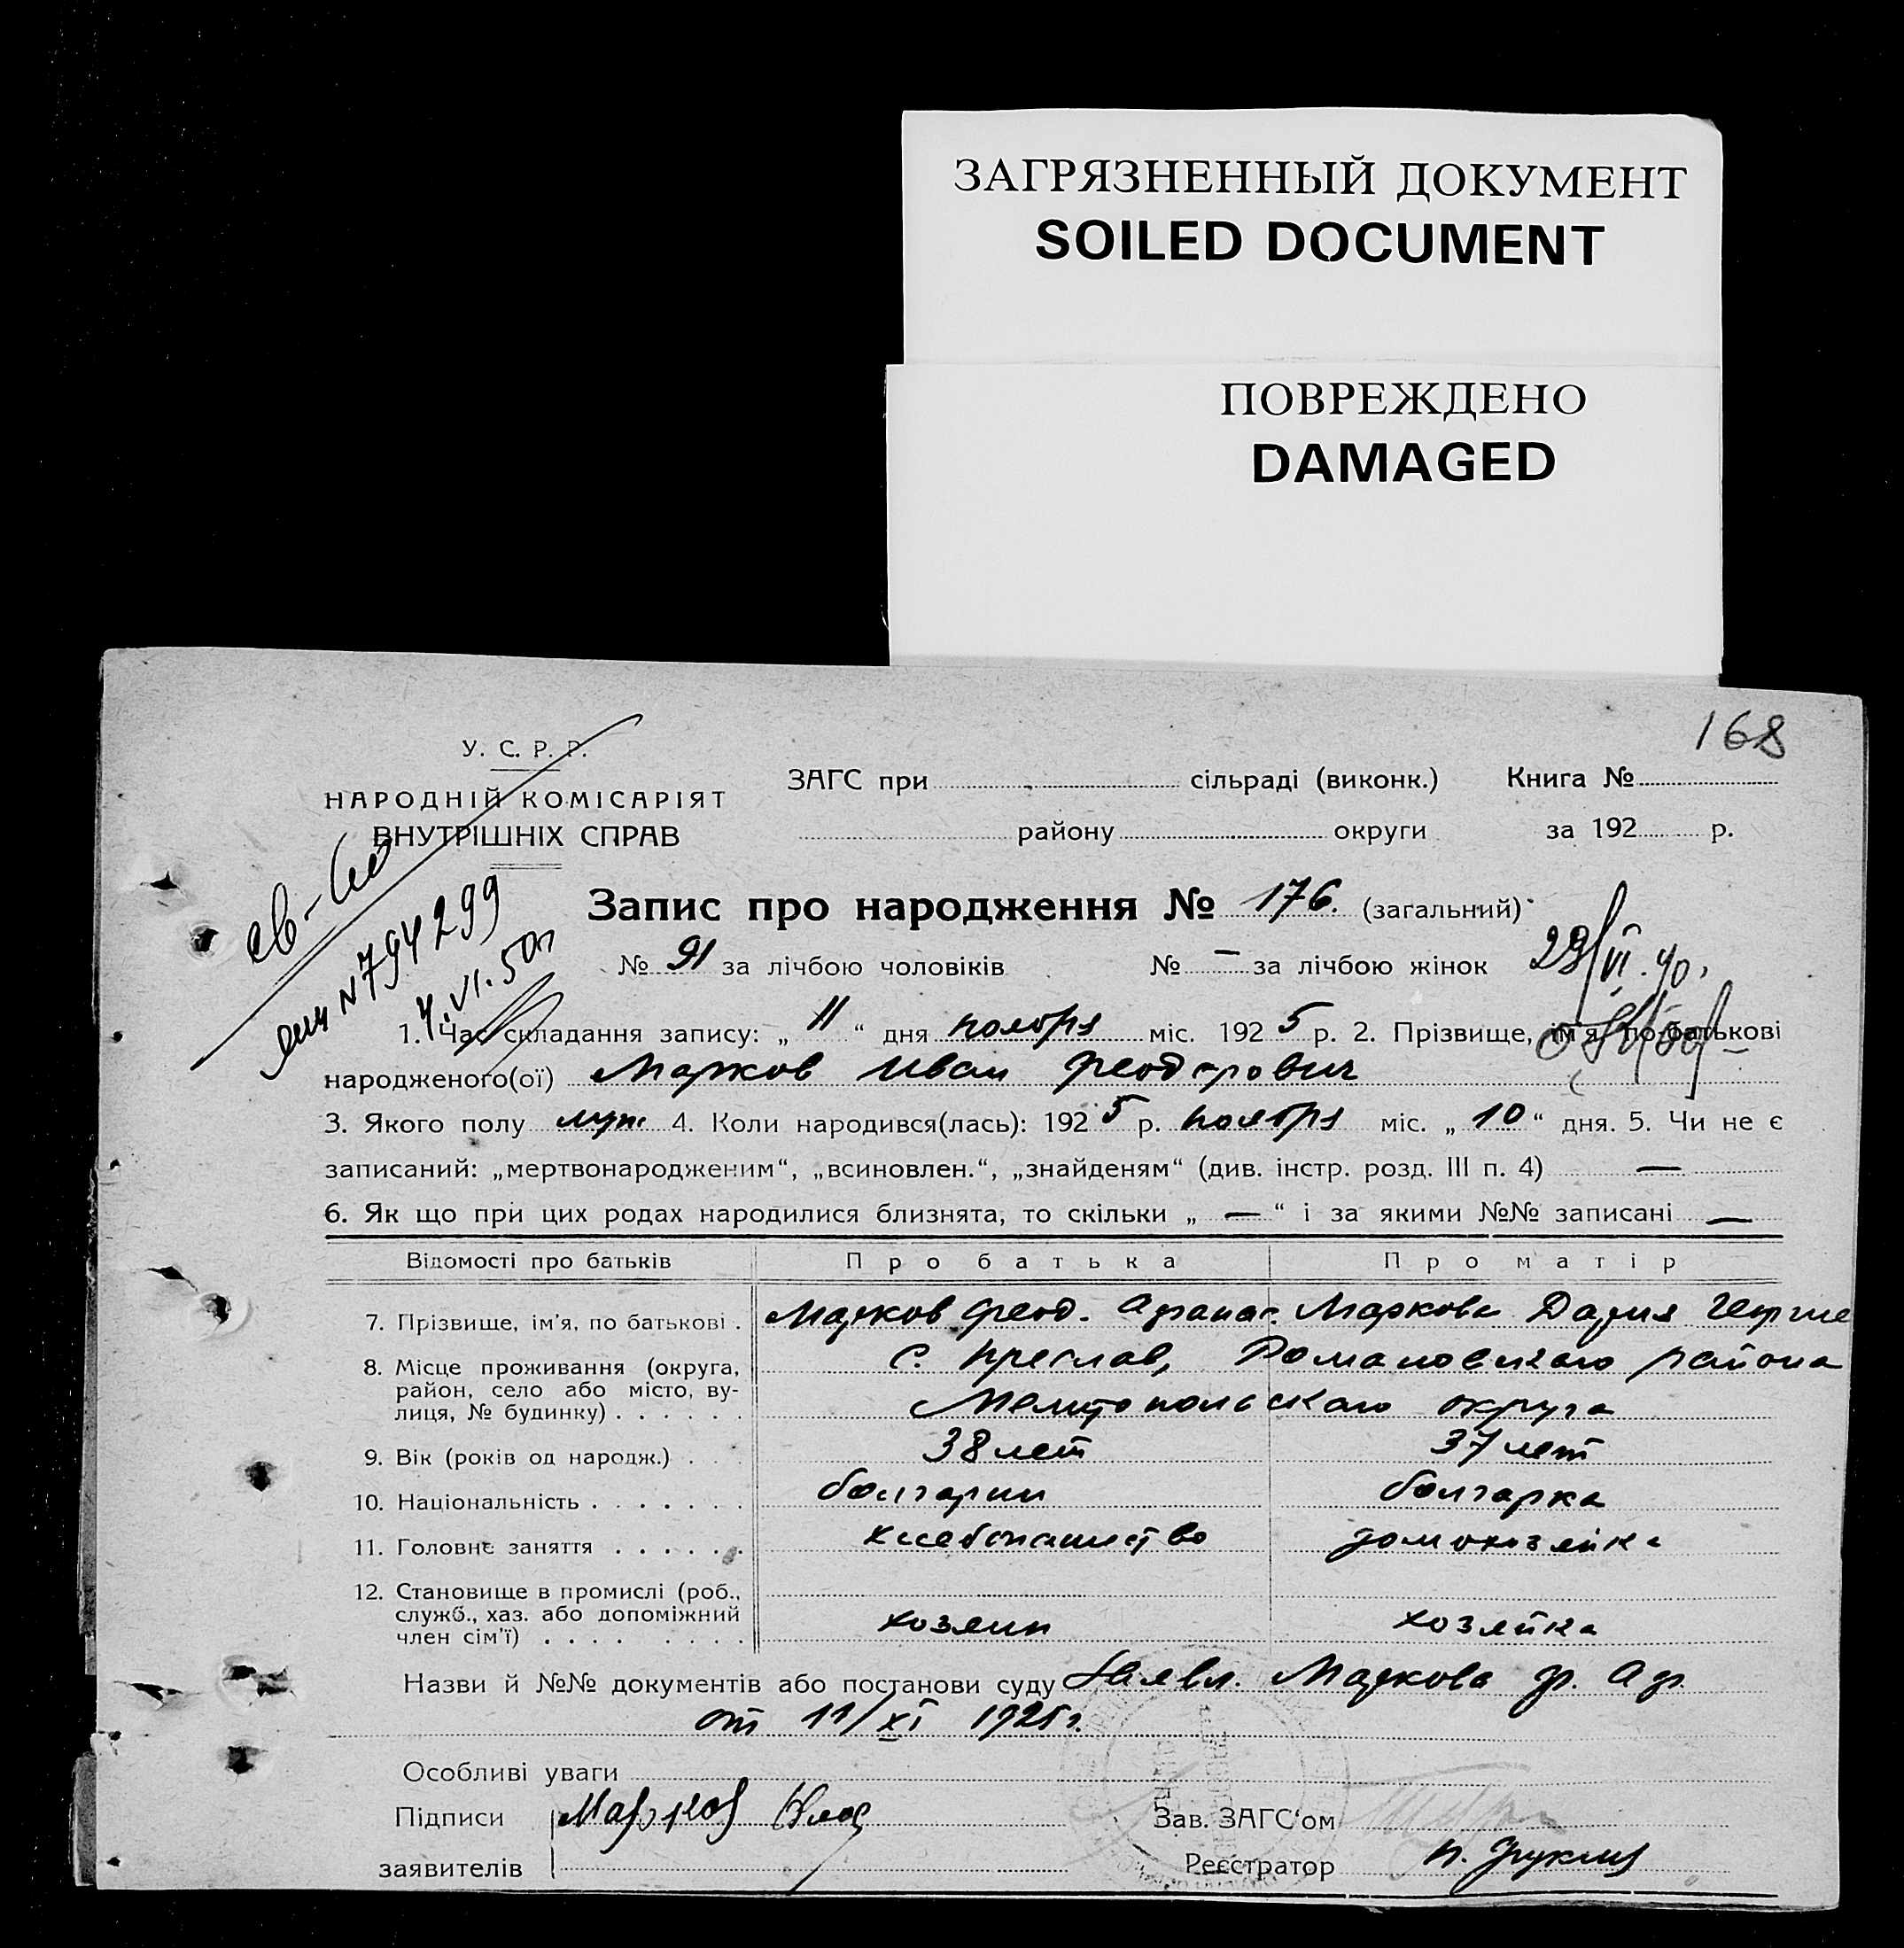 ЗАГРЯЗНЕННЫЙ ДОКУМЕНТ
SOILED DOCUMENT
ПОВРЕЖДЕНО
DAMAGED
168
У. С. Р. Р.
НАРОДНІЙ КОМІСАРІЯТ
ВНУТРІШНІХ СПРАВ
ЗАГС при сільраді (виконк.) Книга №
району округи за 192 р.
№ 794299
4.VI.50г
Запис про народження № 176. (загальний)
№ 91 за лічбою чоловіків № — за лічбою жінок
29/VI.40.
1. Час складання запису: „ 11 “ дня ноября міс. 192 5 р. 2. Прізвище, ім'я, по-батькові
народженого(ої) Марков Иван Феодорович
3. Якого полу муж. 4. Коли народився(лась): 192 5 р. ноября міс. „ 10 “ дня. 5. Чи не є
записаний: „мертвонародженим“, „всиновлен.“, „знайденям“ (див. інстр. розд. III п. 4) —
6. Як що при цих родах народилися близнята, то скільки „ — “ і за якими №№ записані —
Відомості про батьків Про батька Про матір
7. Прізвище, ім'я, по батькові . Марков Феод. Афанас. Маркова Дария Георгие
8. Місце проживання (округа, район, село або місто, вулиця, № будинку) . . . . . . с. Преслав, Романовского района
Мелитопольского округа
9. Вік (років од народж.) . . . 38 лет 37 лет
10. Національність . . . . . . . болгарин болгарка
11. Головне заняття . . . . . . хлебопашество домохозяйка
12. Становище в промислі (роб., служб., хаз. або допоміжний член сім'ї) . . . . . . . . хозяин хозяйка
Назви й №№ документів або постанови суду Заявл. Маркова Ф. Аф.
от 11/XI 1925 г.
Особливі уваги
Підписи Марков Зав. ЗАГС'ом
заявителів Реєстратор